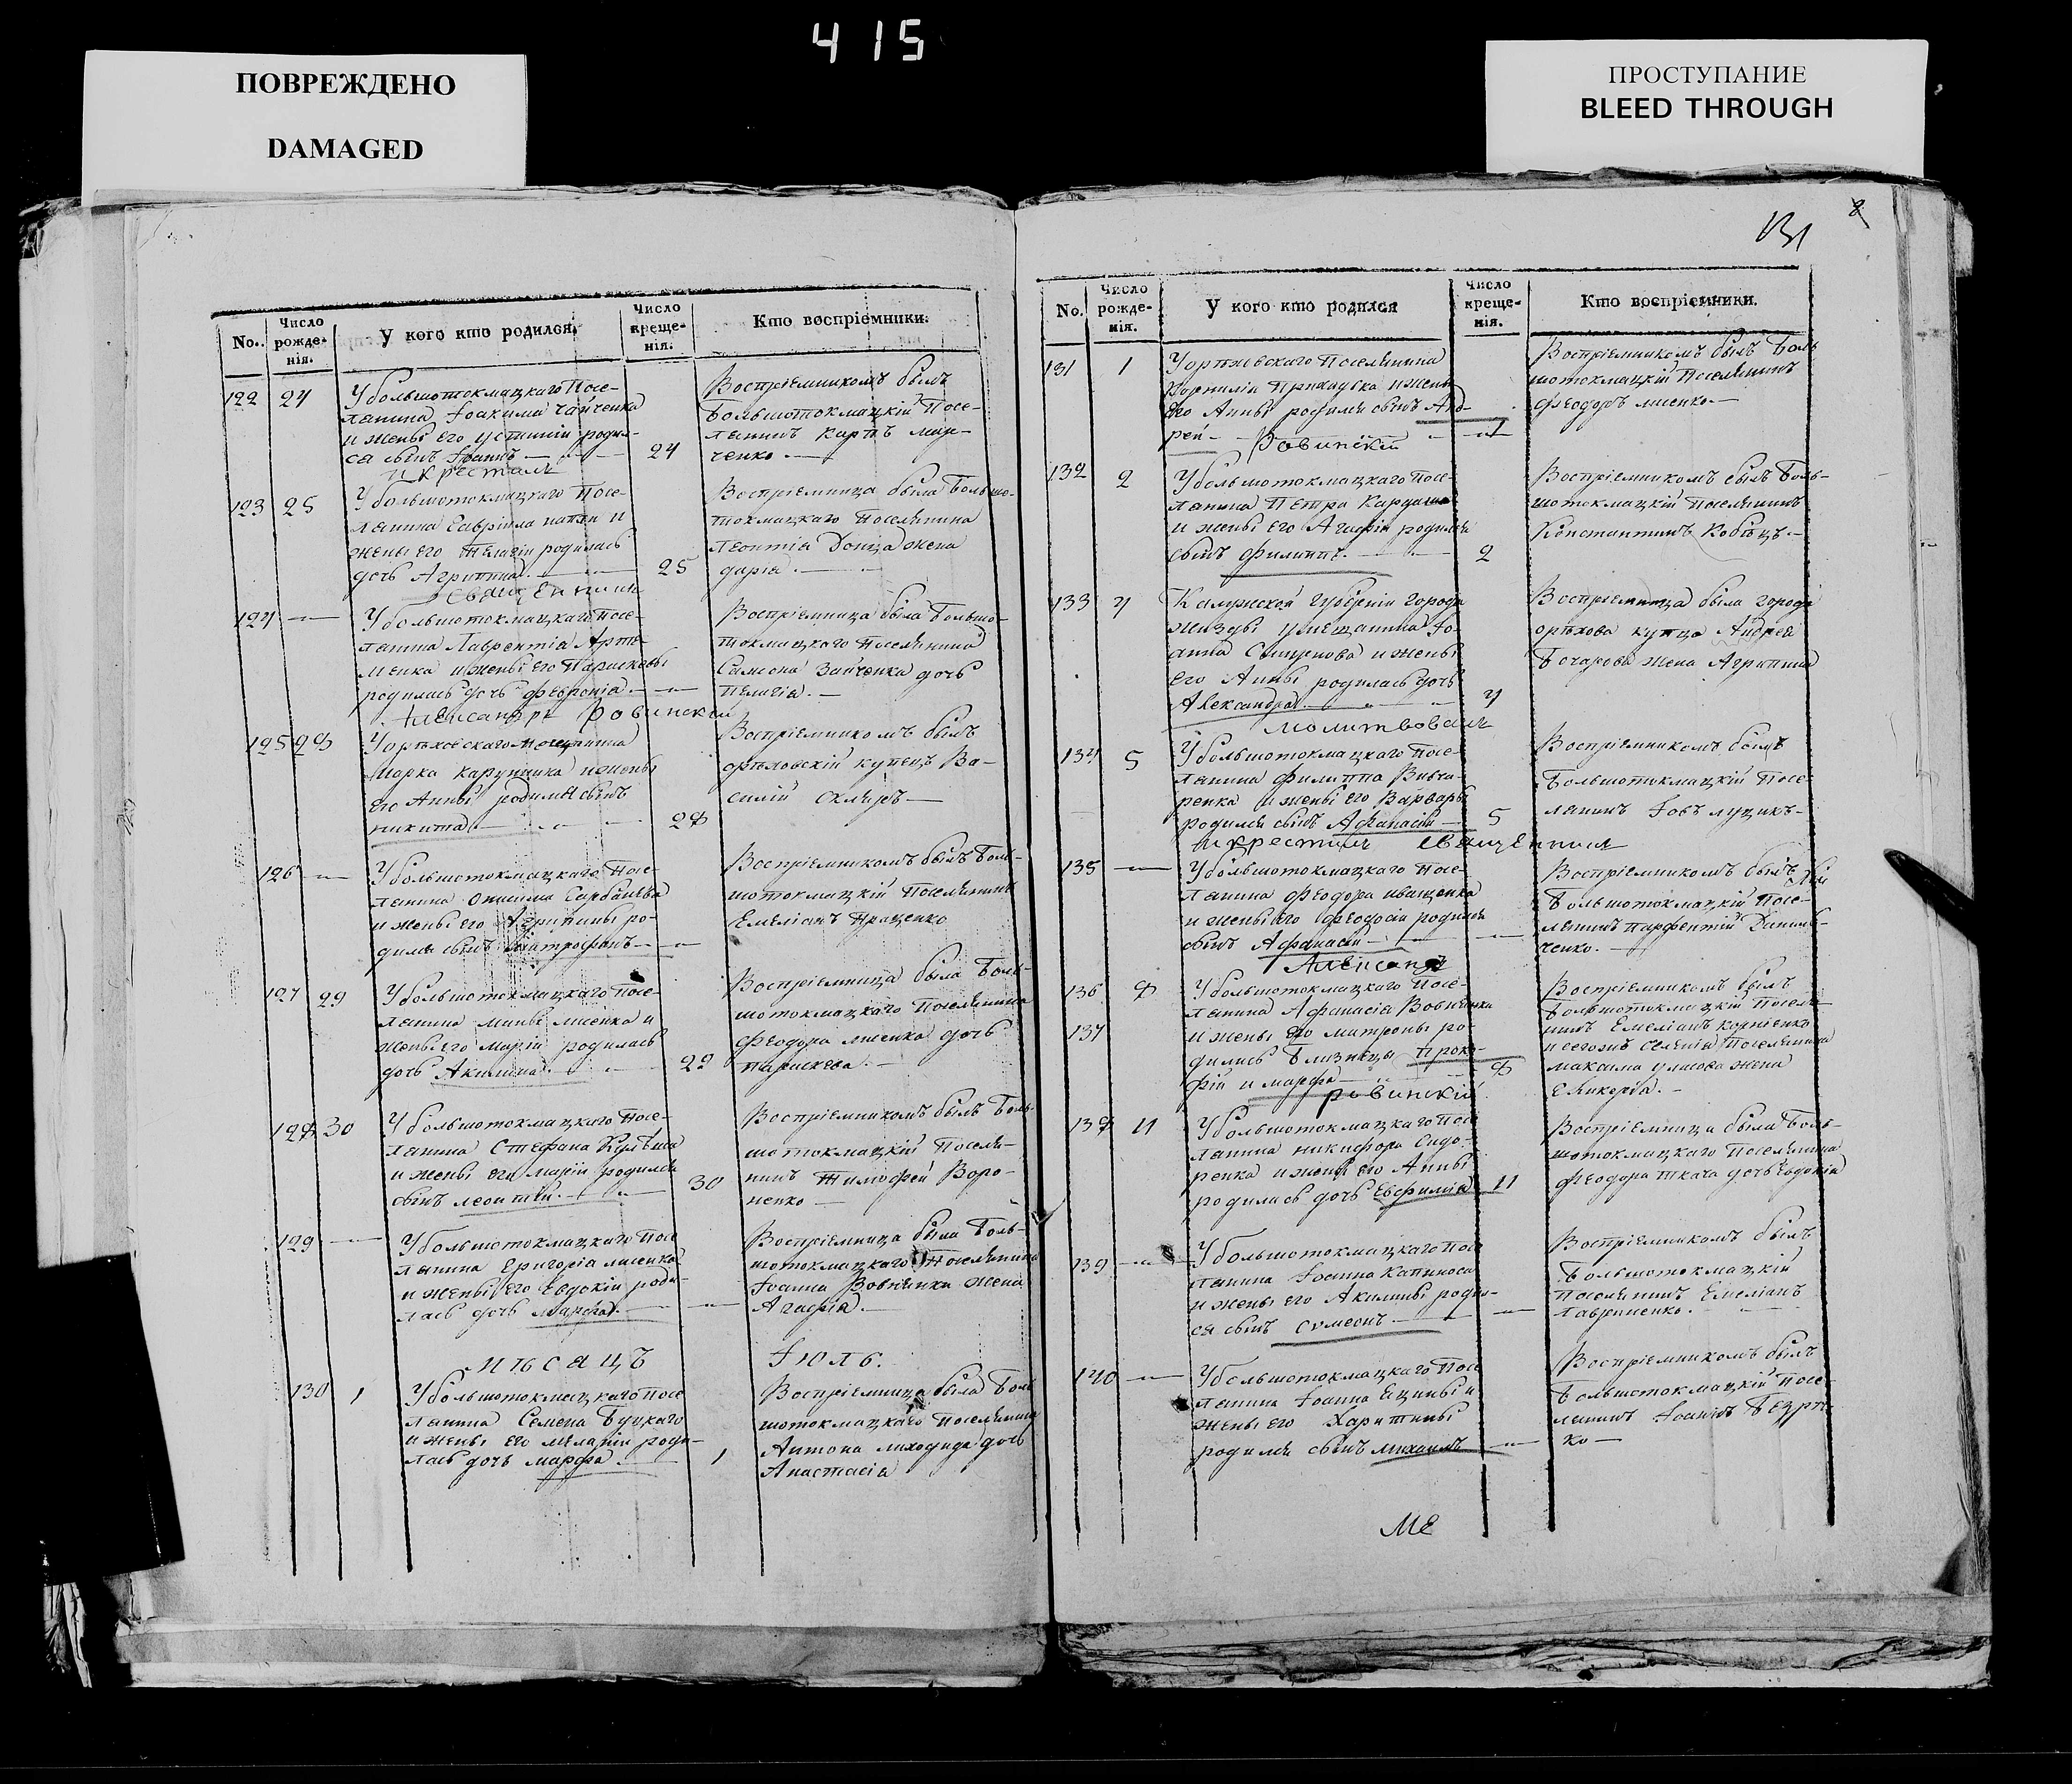 415
ПОВРЕЖДЕНО
DAMAGED
ПРОСТУПАНИЕ
BLEED THROUGH
No. Число рожде-нія. У кого кто родился. Число креще-нія. Кто воспріемники.
122 24
У большотокмацкаго Посе-
лянина Іоакима Чайченка
и жены его Устиніи родил-
ся сынъ Іоаннъ
24
Воспріемникомъ былъ
Большотокмацкій Посе-
лянинъ Карпъ
ченко
и крестилъ
123 25
У большотокмацкаго Посе-
лянина Гавріила и
жены его Пелагіи родилась
дочь Агрипина
25
Воспріемница была Большо-
токмацкаго Поселянина
Леонтія Донца жена
Дарія
Священникъ
124
У большотокмацкаго Посе-
лянина Лаврентія Арте-
менка и жены его Параскевы
родилась дочь Феоронія
Воспріемница была Большо-
токмацкаго Поселянина
Симона Зайченка дочь
Пелагія
Александръ Ровинскій
125 28
У орѣховскаго мещанина
Марка Карупника и жены
его Анны родился сынъ
Никита
28
Воспріемникомъ былъ
орѣховскій купецъ Ва-
силій Скляръ
126
У большотокмацкаго Посе-
лянина Онисима
и жены его Агрипины ро-
дился сынъ Митрофанъ
Воспріемникомъ былъ Боль-
шотокмацкій Поселянинъ
Емеліанъ Проценко
127 29
У большотокмацкаго Посе-
лянина Мины Лисенка и
жены его Маріи родилась
дочь Акилина
29
Воспріемница была Боль-
шотокмацкаго Поселянина
Феодора Лисенка дочь
Параскева
128 30
У большотокмацкаго Посе-
лянина Стефана Кулѣша
и жены его Маріи родился
сынъ Леонтій
30
Воспріемникомъ былъ Боль-
шотокмацкій Поселя-
нинъ Тимофей Воро-
ненко
129
У большотокмацкаго Посе
лянина Григорія Лисенка
и жены его Евдокіи роди-
лась дочь Марфа
Воспріемница была Боль-
шотокмацкаго Поселянина
Іоанна Вовненка жена
Агафія
Мѣсацъ Іюль.
130 1
У большотокмацкаго Посе
лянина Семена Буцкаго
и жены его Меланіи роди-
лась дочь Марфа
1
Воспріемница была Боль
шотокмацкаго Поселянина
Антона Лиходида дочь
Анастасія
131
No. Число рожде-нія. У кого кто родился Число креще-нія. Кто воспріемники.
131 1
У орѣховскаго Поселянина
Корнилія Приходька и жены
его Анны родился сынъ Анд-
рей
1
Воспріемникомъ былъ Боль
шотокмацкій Поселянинъ
Феодоръ Лисенко
Ровинскій
132 2
У большотокмацкаго Посе-
лянина Петра Кардаша
и жены его Агафіи родился
сынъ Филиппъ
2
Воспріемникомъ былъ Боль-
шотокмацкій Поселянинъ
Константинъ Кобецъ
133 4
Калужской Губерніи города
Жиздры у мещанина Іо-
анна и жены
его Анны родилась дочь
Александра
4
Воспріемница была города
орѣхова купца Андрея
Бочарова жена Агрипина
молитвовалъ
134 5
У большотокмацкаго Посе-
лянина Филиппа Вивча-
ренка и жены его Варвары
родился сынъ Афанасій
5
Воспріемникомъ былъ
Большотокмацкій Посе-
лянинъ Іовъ Луцикъ
и крестилъ Священникъ
135
У большотокмацкаго Посе-
лянина Феодора Иващенка
и жены его Феодосіи родился
сынъ Афанасій
Воспріемникомъ былъ
Большотокмацкій Посе-
лянинъ Парфентій Даниль-
ченко
Александръ
136 8
137
У большотокмацкаго Посе-
лянина Афанасія Вовненка
и жены его Матроны ро-
дились Близнецы Проко-
фій и Марфа
8
Воспріемникомъ былъ
Большотокмацкій Поселя-
нинъ Емеліанъ Корніенко
и сегожъ селенія Поселянина
Максима Улисова жена
Гликерія
Ровинскій
138 11
У большотокмацкаго Посе
лянина Никифора Сидо-
ренка и жены его Анны
родилась дочь Евфимія
11
Воспріемница была Боль-
шотокмацкаго Поселянина
Феодора Ткача дочь Евдокія
139
У большотокмацкаго Посе
лянина Іоанна Капиноса
и жены его Акилины родил-
ся сынъ Сумеонъ
Воспріемникомъ былъ
Большотокмацкій
Поселянинъ Емеліанъ
Лавриненко
140
У большотокмацкаго Посе
лянина Іоанна Ецины и
жены его Харитины
родился сынъ Михаилъ
Воспріемникомъ былъ
Большотокмацкій Посе-
лянинъ Іоаннъ
ко
МЕ